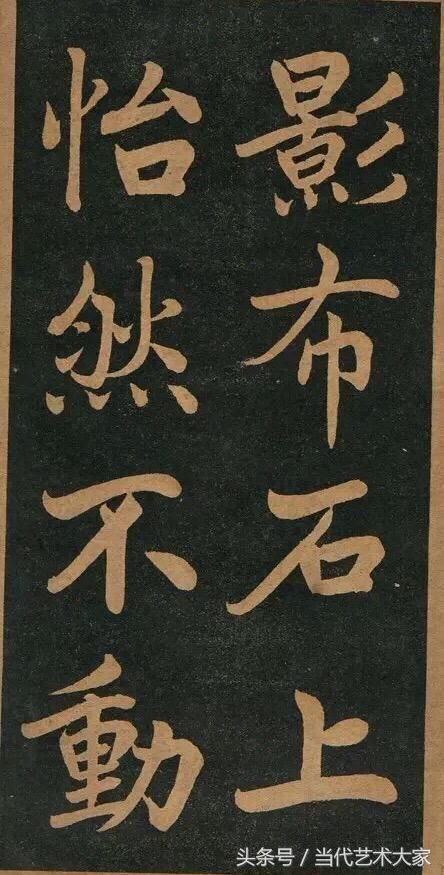 影布石上
怡然不動
头条号／当代艺术大家